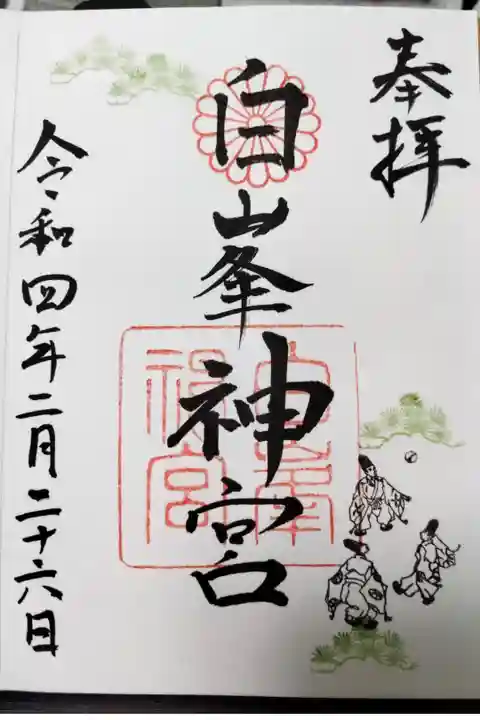 奉拝
白峯神宮
白峯神宮
令和四年二月二十六日